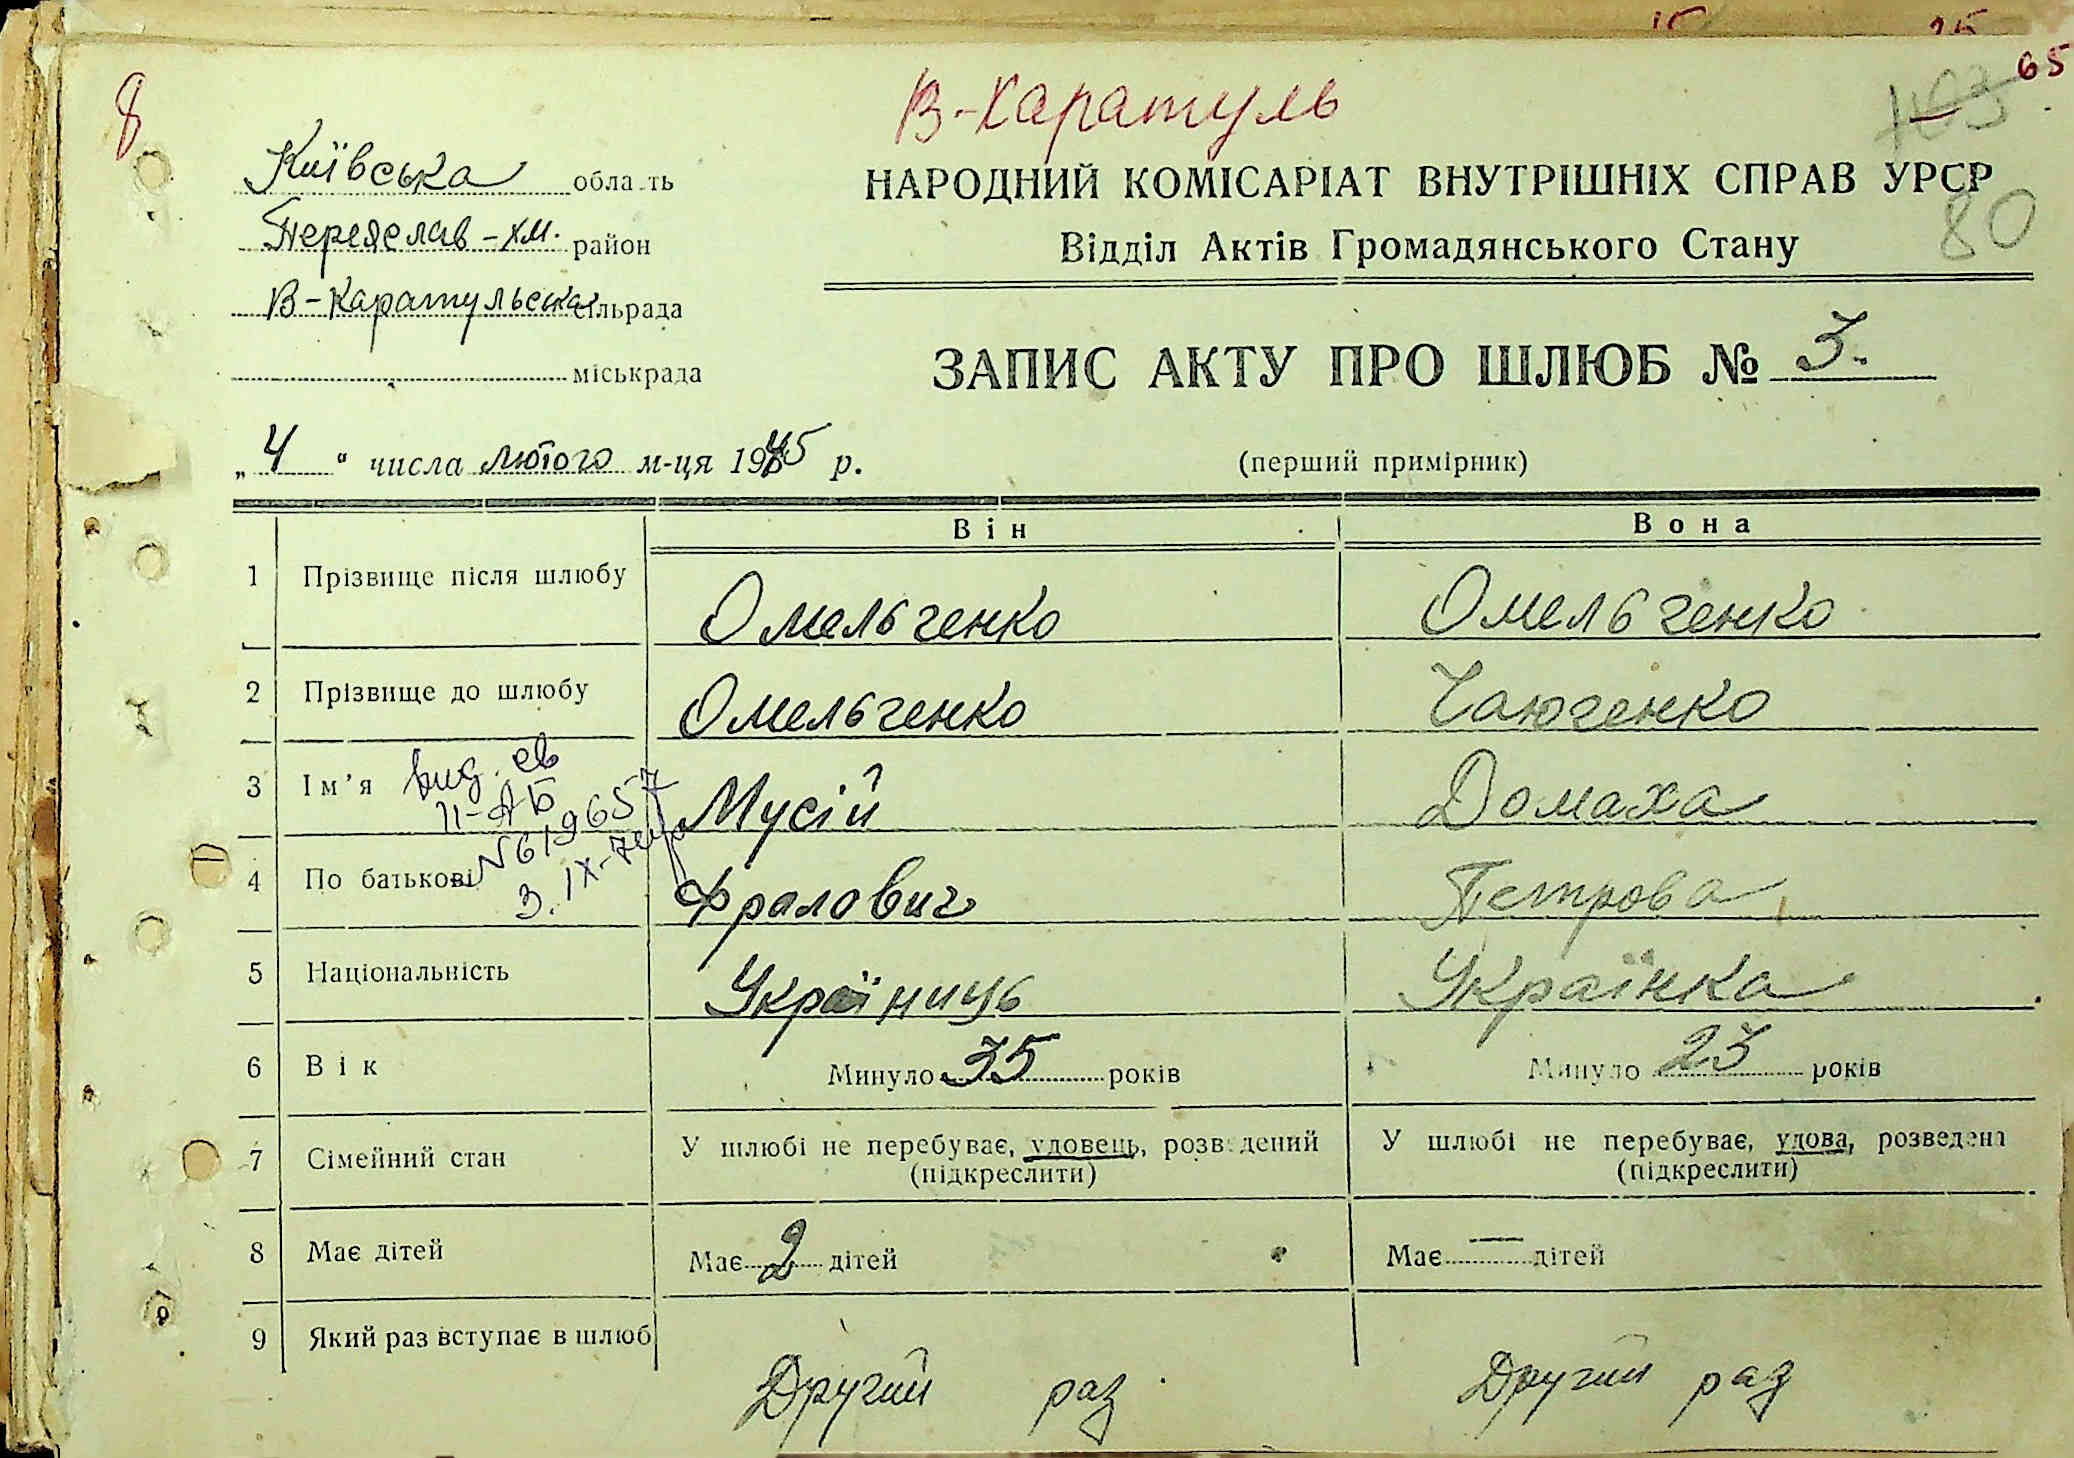 15 25
8 65
В-Каратуль
103
Київська область
Переяслав-хм. район
В-Каратульська сільрада
міськрада
НАРОДНИЙ КОМІСАРІАТ ВНУТРІШНІХ СПРАВ УРСР
80
Відділ Актів Громадянського Стану
ЗАПИС АКТУ ПРО ШЛЮБ № 3.
„ 4 “ числа лютого м-ця 1945 р.
(перший примірник)
Він Вона
1 Прізвище після шлюбу Омельченко Омельченко
2 Прізвище до шлюбу Омельченко Чаюченко
3 Ім'я Мусій Домаха
вид. св
II-АБ
N619657
3. IX-
4 По батькові Фралович Петрова
5 Національність Українць Українка
6 Вік Минуло 35 років Минуло 23 років
7 Сімейний стан У шлюбі не перебуває, удовець, розведений У шлюбі не перебуває, удова, розведена
(підкреслити) (підкреслити)
8 Має дітей Має 2 дітей Має — дітей
9 Який раз вступає в шлюб
Другий раз Другий раз